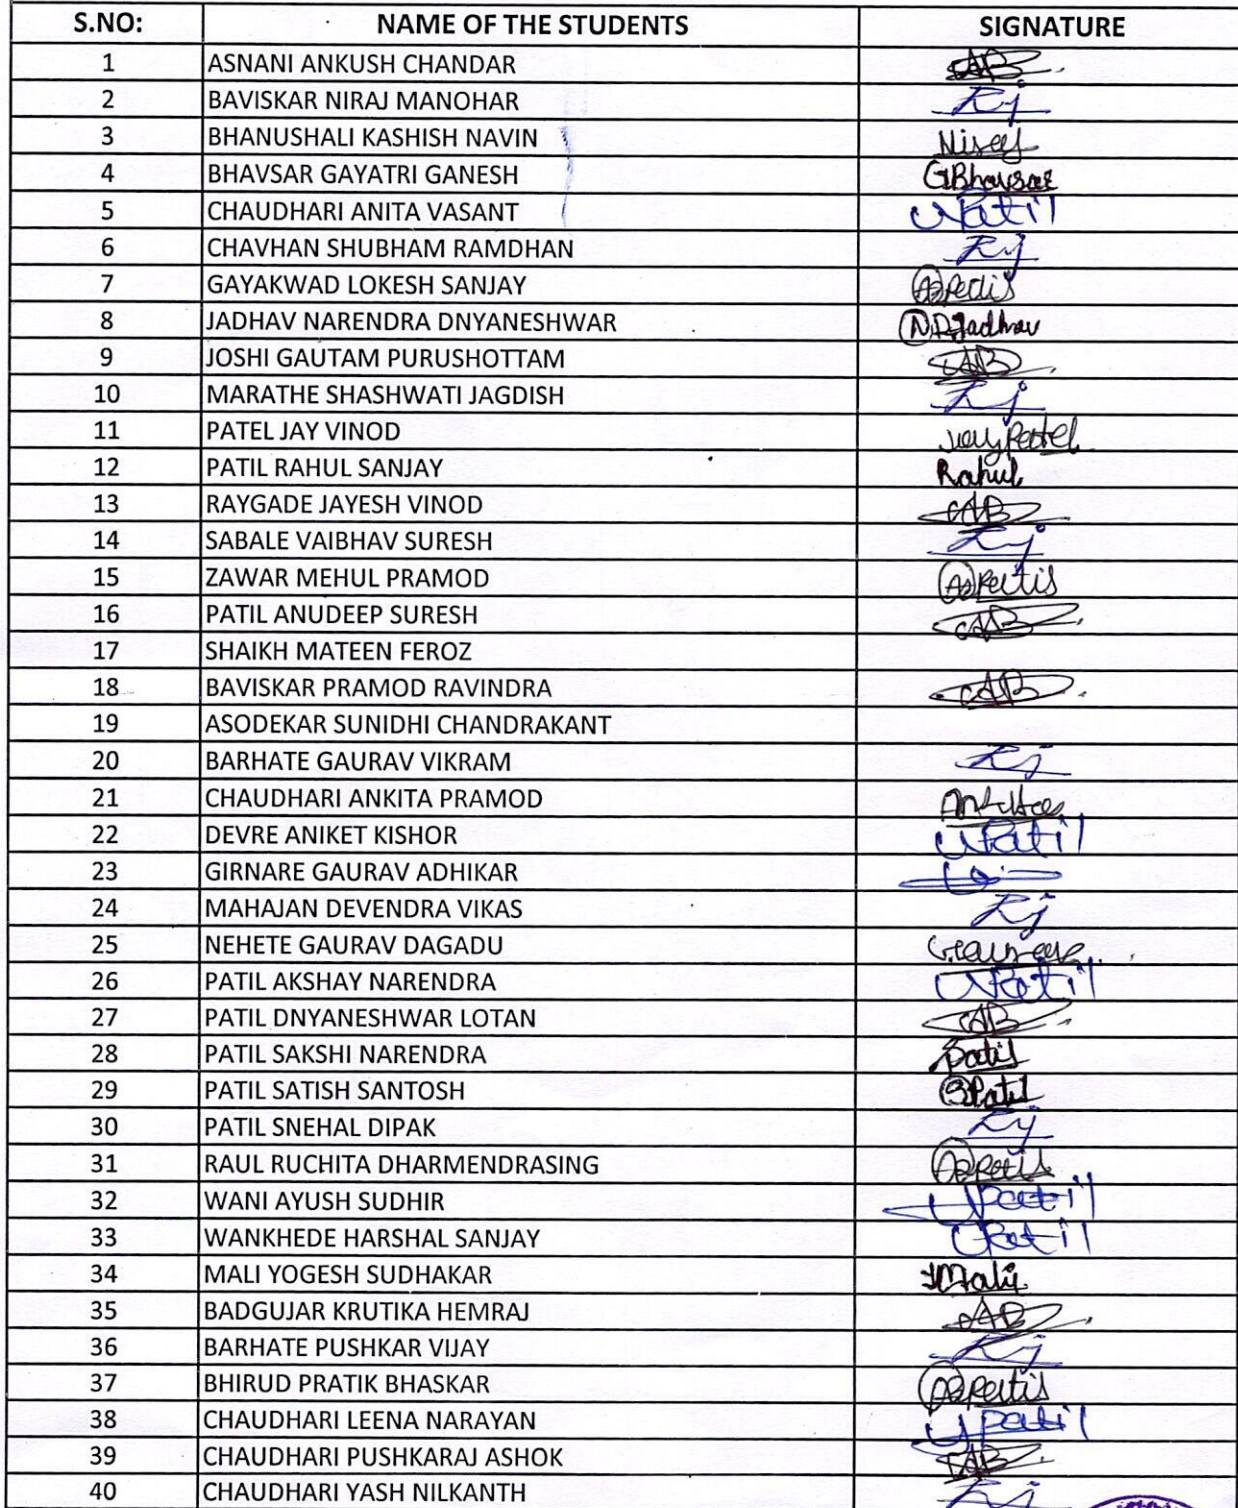 S.NO: NAME OF THE STUDENTS SIGNATURE
1 ASNANI ANKUSH CHANDAR
2 BAVISKAR NIRAJ MANOHAR Rj
3 BHANUSHALI KASHISH NAVIN
4 BHAVSAR GAYATRI GANESH GBhavsar
5 CHAUDHARI ANITA VASANT
6 CHAVHAN SHUBHAM RAMDHAN Rj
7 GAYAKWAD LOKESH SANJAY
8 JADHAV NARENDRA DNYANESHWAR NDJadhav
9 JOSHI GAUTAM PURUSHOTTAM
10 MARATHE SHASHWATI JAGDISH Rj
11 PATEL JAY VINOD Jay Patel
12 PATIL RAHUL SANJAY Rahul
13 RAYGADE JAYESH VINOD
14 SABALE VAIBHAV SURESH Rj
15 ZAWAR MEHUL PRAMOD
16 PATIL ANUDEEP SURESH
17 SHAIKH MATEEN FEROZ
18 BAVISKAR PRAMOD RAVINDRA
19 ASODEKAR SUNIDHI CHANDRAKANT
20 BARHATE GAURAV VIKRAM Rj
21 CHAUDHARI ANKITA PRAMOD
22 DEVRE ANIKET KISHOR
23 GIRNARE GAURAV ADHIKAR
24 MAHAJAN DEVENDRA VIKAS Rj
25 NEHETE GAURAV DAGADU
26 PATIL AKSHAY NARENDRA
27 PATIL DNYANESHWAR LOTAN
28 PATIL SAKSHI NARENDRA Patil
29 PATIL SATISH SANTOSH SPatil
30 PATIL SNEHAL DIPAK Rj
31 RAUL RUCHITA DHARMENDRASING
32 WANI AYUSH SUDHIR
33 WANKHEDE HARSHAL SANJAY
34 MALI YOGESH SUDHAKAR YMali
35 BADGUJAR KRUTIKA HEMRAJ
36 BARHATE PUSHKAR VIJAY Rj
37 BHIRUD PRATIK BHASKAR
38 CHAUDHARI LEENA NARAYAN
39 CHAUDHARI PUSHKARAJ ASHOK
40 CHAUDHARI YASH NILKANTH Rj